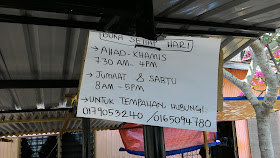 BUKA SETIAP HARI
→ AHAD-KHAMIS
7.30 AM - 4PM
→ JUMAAT & SABTU
8AM - 5PM
→ UNTUK TEMPAHAN, HUBUNGI:
0179053240 / 0165094780